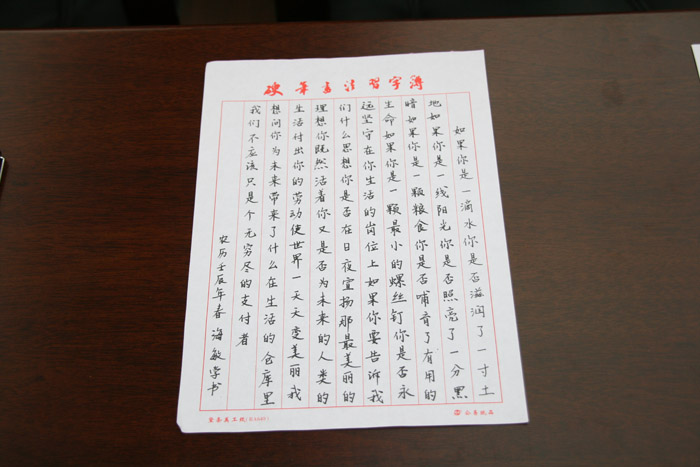 硬笔书法习字簿
如果你是一滴水你是否滋润了一寸土
地如果你是一线阳光你是否照亮了一分黑
暗如果你是一颗粮食你是否哺育了有用的
生命如果你是一颗最小的螺丝钉你是否永
远坚守在你生活的岗位上如果你要告诉我
们什么思想你是否在日夜宣扬那最美丽的
理想你既然活着你又是否为未来的人类的
生活付出你的劳动使世界一天天变美丽我
想问你为未来带来了什么在生活的仓库里
我们不应该只是个无穷尽的支付者
农历壬辰年春海敏学书